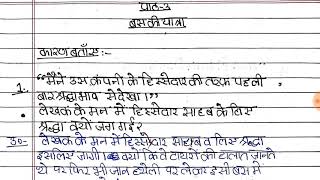 पाठ-3
बस की यात्रा
कारण बताएँ :-
1. "मैंने उस कंपनी के हिस्सेदार की तरफ पहली
बार श्रद्धाभाव से देखा।"
लेखक के मन में हिस्सेदार साहब के लिए
श्रद्धा क्यों जग गई?
उ०- लेखक के मन में हिस्सेदार साहब के लिए श्रद्धा
इसलिए जागी क्यों कि वे टायरों की हालत जानते
थे पर फिर भी जान हथेली पर लेकर इसी बस में